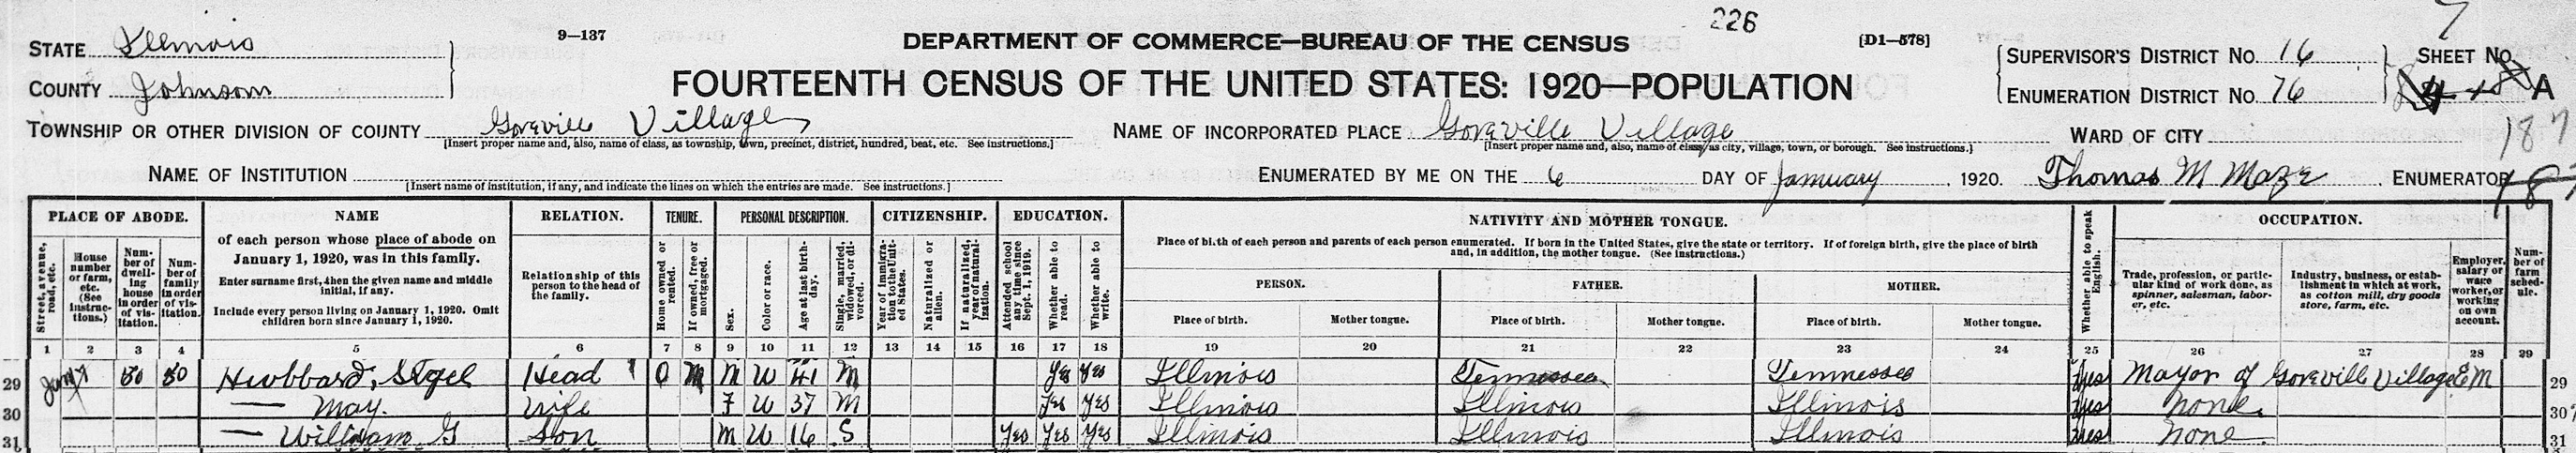 226
7
STATE Illinois
9—137
DEPARTMENT OF COMMERCE—BUREAU OF THE CENSUS
[D1—578]
SUPERVISOR'S DISTRICT No. 16
SHEET No.
COUNTY Johnson
FOURTEENTH CENSUS OF THE UNITED STATES: 1920—POPULATION
ENUMERATION DISTRICT No. 76
A
TOWNSHIP OR OTHER DIVISION OF COUNTY Goreville Village
[Insert proper name and, also, name of class, as township, town, precinct, district, hundred, beat, etc. See instructions.]
NAME OF INCORPORATED PLACE Goreville Village
[Insert proper name and, also, name of class, as city, village, town, or borough. See instructions.]
WARD OF CITY
187
NAME OF INSTITUTION
[Insert name of institution, if any, and indicate the lines on which the entries are made. See instructions.]
ENUMERATED BY ME ON THE 6 DAY OF January, 1920. Thomas M Maze, ENUMERATOR
PLACE OF ABODE.
Street, avenue, road, etc.
House number or farm, etc. (See instructions.)
Number of dwelling house in order of visitation.
Number of family in order of visitation.
NAME
of each person whose place of abode on January 1, 1920, was in this family.
Enter surname first, then the given name and middle initial, if any.
Include every person living on January 1, 1920. Omit children born since January 1, 1920.
RELATION.
Relationship of this person to the head of the family.
TENURE.
Home owned or rented.
If owned, free or mortgaged.
PERSONAL DESCRIPTION.
Sex.
Color or race.
Age at last birthday.
Single, married, widowed, or divorced.
CITIZENSHIP.
Year of immigration to the United States.
Naturalized or alien.
If naturalized, year of naturalization.
EDUCATION.
Attended school any time since Sept. 1, 1919.
Whether able to read.
Whether able to write.
NATIVITY AND MOTHER TONGUE.
Place of birth of each person and parents of each person enumerated. If born in the United States, give the state or territory. If of foreign birth, give the place of birth and, in addition, the mother tongue. (See instructions.)
PERSON.
FATHER.
MOTHER.
Place of birth.
Mother tongue.
Place of birth.
Mother tongue.
Place of birth.
Mother tongue.
Whether able to speak English.
OCCUPATION.
Trade, profession, or particular kind of work done, as spinner, salesman, laborer, etc.
Industry, business, or establishment in which at work, as cotton mill, dry goods store, farm, etc.
Employer, salary or wage worker, or working on own account.
Number of farm schedule.
1 2 3 4 5 6 7 8 9 10 11 12 13 14 15 16 17 18 19 20 21 22 23 24 25 26 27 28 29
29 50 50 Hubbard, Head 1 O M M W 41 M Yes Yes Illinois Tennessee Tennessee yes Mayor of Goreville Village EM 29
30 — May. Wife F W 37 M Yes Yes Illinois Illinois Illinois yes None. 30
31 — William G Son M W 16 S Yes Yes Yes Illinois Illinois Illinois yes None 31